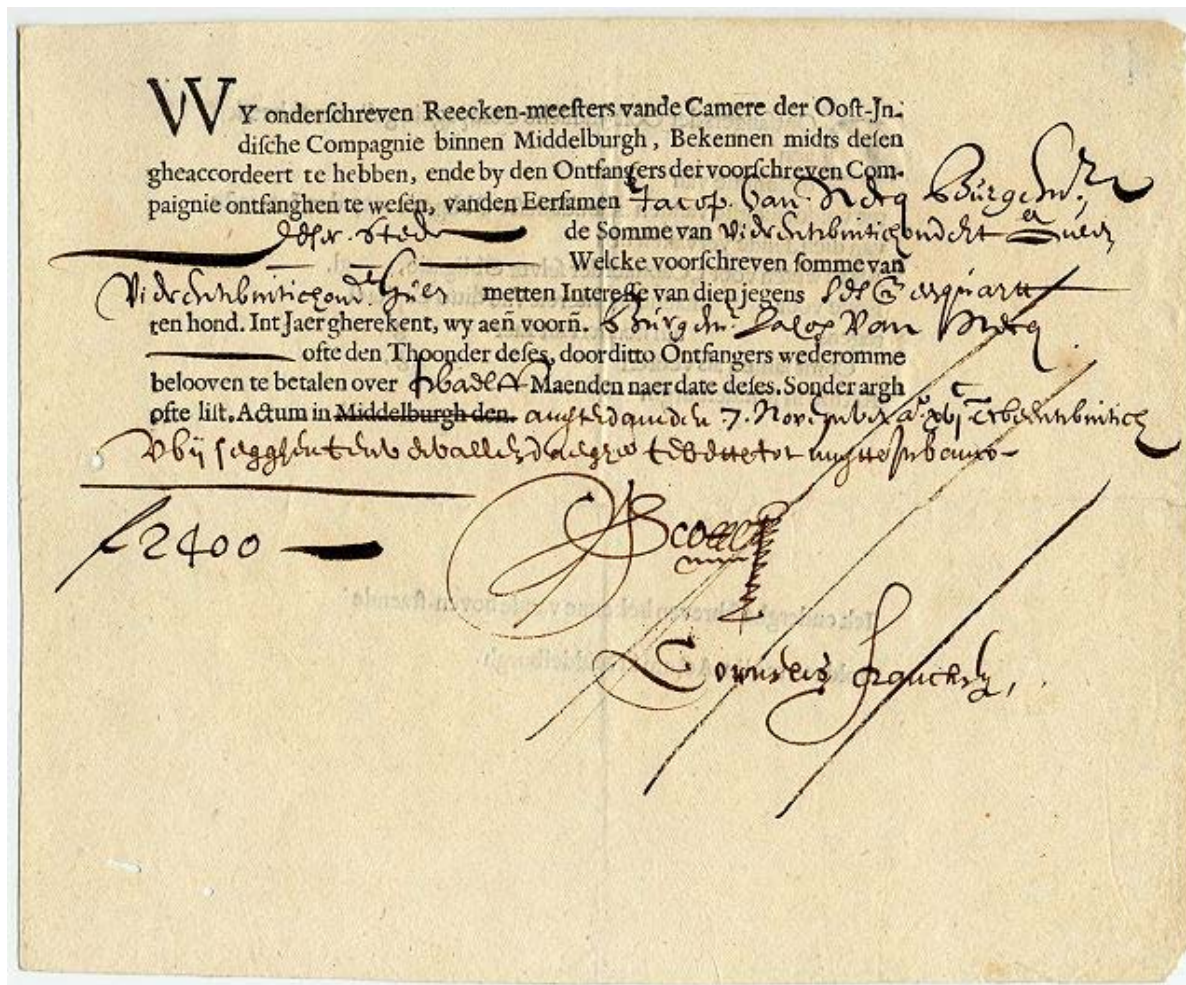 WY onderſchreven Reecken-meeſters vande Camere der Ooſt-Jn-
diſche Compagnie binnen Middelburgh, Bekennen midrs deſen
gheaccordeert te hebben, ende by den Ontfangers der voorſchreven Com-
paignie ontfanghen te weſen, vanden Eerſamen Jacop. van. Neck
deser. Stede de Somme van vierentwintich hondert
Welcke voorſchreven ſomme van
vierentwintich hond metten Intereſſe van dien jegens
ten hond. Int Jaer gherekent, wy aen̄ voorn̄. Jacop van Neck
ofte den Thoonder deſes, door ditto Ontfangers wederomme
belooven te betalen over twaelff Maenden naer date deſes. Sonder argh
ofte liſt. Actum in Middelburgh den. 7. November
f 2400
Cornelis